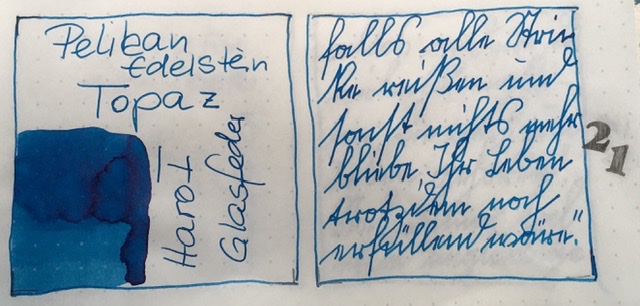 Pelikan
Edelstein
Topaz
Harot
Glasfeder
falls alle Stri-
ke reißen und
sonst nichts mehr
bliebe, Ihr Leben
trotzdem noch
erfüllend wäre."
21